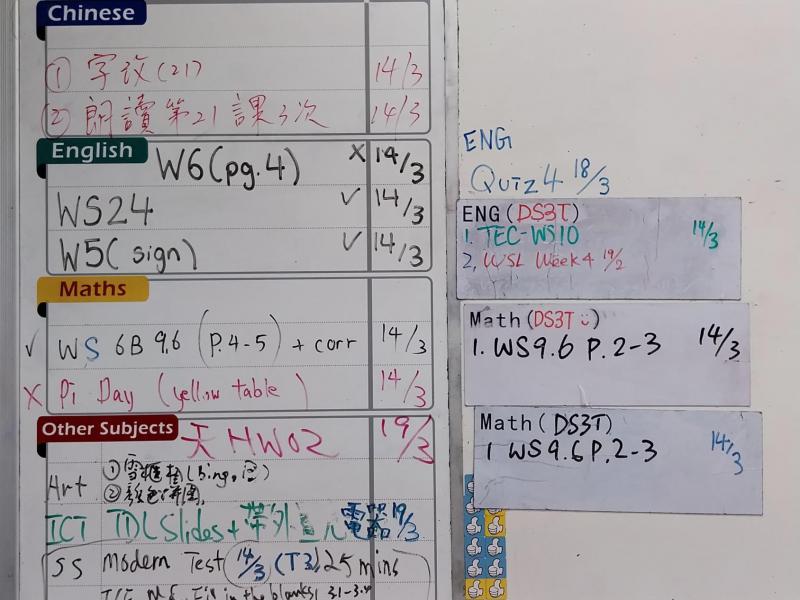 Chinese
① 字改(21) 14/3
② 朗讀第21課3次 14/3
English
W6(pg.4) X 14/3
WS24 ✓ 14/3
W5(sign) ✓ 14/3
Maths
✓ WS 6B 9.6 (P.4-5) + corr 14/3
X Pi Day (yellow table) 14/3
Other Subjects
天 HW02 19/3
Art ①
②
ICT TDL Slides + 帶外 電器 19/3
SS Modern Test 14/3 (T3) 25 mins
Fill in the blanks 3.1-3.4
ENG
Quiz 4 18/3
ENG(DS3T)
1. TEC-WS10 14/3
2, WSL Week 4 19/2
Math(DS3T)
1. WS9.6 P.2-3 14/3
Math(DS3T)
1 WS9.6 P.2-3 14/3